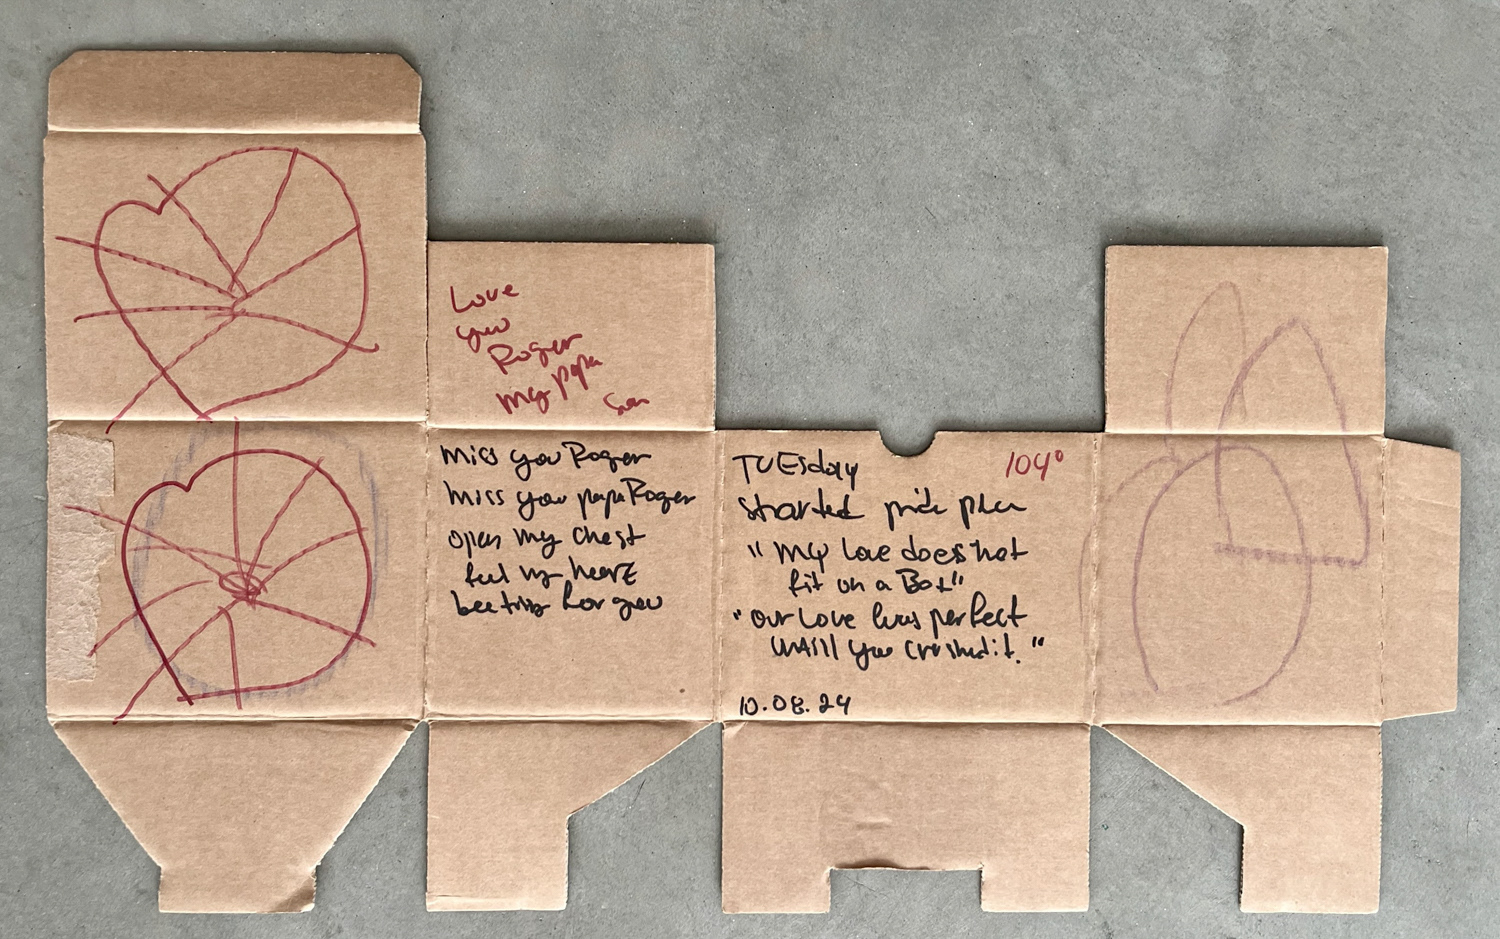 Love
you
Roger
my papa
Miss you Roger
miss you papa Roger
open my chest
feel my heart
beeting for you
TUEsday
104°
started
"My Love does not
fit on a Box"
"our Love was perfect
untill you crushed it."
10.08.24